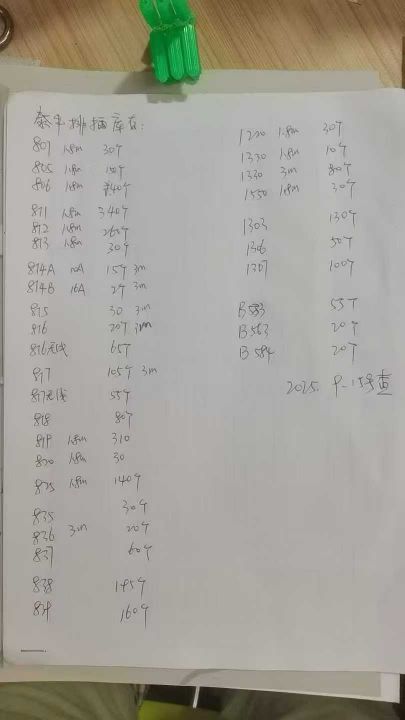 泰丰排插库存:
807 1.8m 30个
805 1.8m 150个
806 1.8m 40个
811 1.8m 340个
812 1.8m 260个
813 1.8m 30个
814A 10A 15个 3m
814B 16A 2个 3m
815 30 3m
816 20个 3m
816无线 65个
817 105个 3m
817无线 55个
818 80个
819 1.8m 310
820 1.8m 30
825 1.8m 140个
835 30个
836 3m 20个
837 60个
838 145个
839 160个
1220 1.8m 30个
1330 1.8m 10个
1330 3m 80个
1550 1.8m 30个
1303 130个
1306 50个
1307 100个
B553 55个
B563 20个
B584 20个
2025. 9-15号查